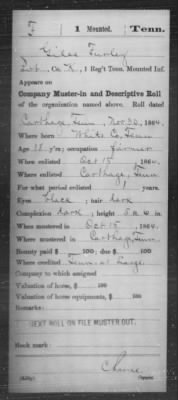 F 1 Mounted. Tenn.
Giles Furley
Pvt., Co. K, 1 Reg't Tenn. Mounted Inf.
Appears on
Company Muster-in and Descriptive Roll
of the organization named above. Roll dated
Carthage, Tenn, Nov 30, 1864.
Where born White Co, Tenn
Age 18 y'rs; occupation Farmer
When enlisted Oct 15, 1864.
Where enlisted Carthage, Tenn
For what period enlisted years.
Eyes black; hair dark
Complexion dark; height 5 ft. in.
When mustered in Oct 15, 1864.
Where mustered in Carthage, Tenn.
Bounty paid $ 100; due $ 100
Where credited Tenn at Large
Company to which assigned
Valuation of horse, $ 100
Valuation of horse equipments, $ 100
Remarks:
NEXT ROLL ON FILE MUSTER OUT.
Book mark:
Copyist.